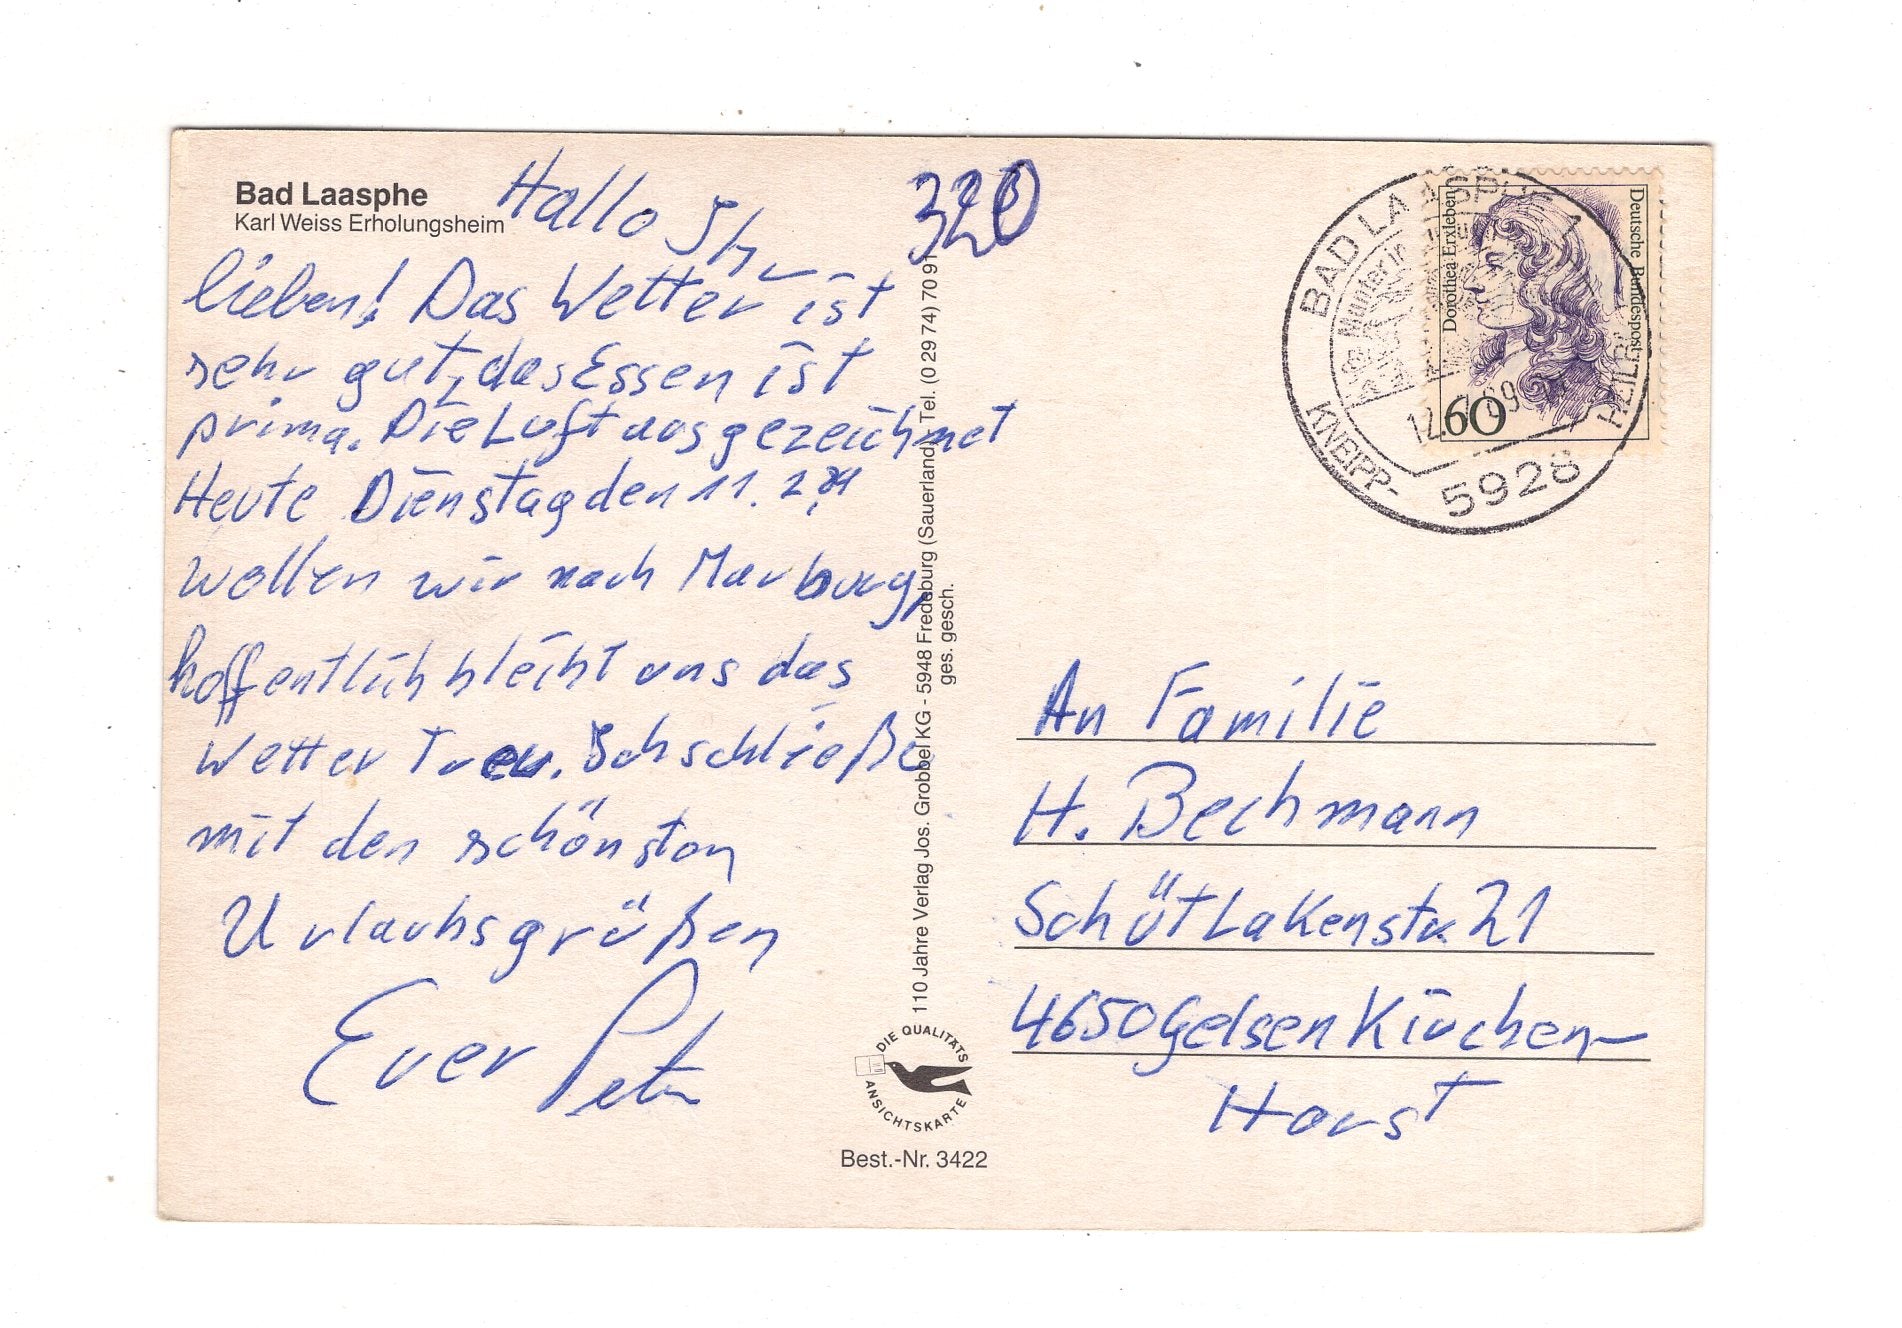 Bad Laasphe
Karl Weiss Erholungsheim
320
Hallo Ihr
lieben! Das Wetter ist
sehr gut, das Essen ist
prima. Die Luft ausgezeichnet
Heute Dienstag den 11. 7. 89
wollen wir nach Marburg,
hoffentlich bleibt uns das
Wetter Treu. Ich schließe
mit den schönsten
Urlaubsgrüßen
Euer Peter
110 Jahre Verlag Jos. Grobbel KG - 5948 Fredeburg (Sauerland) - Tel. (0 29 74) 70 91
ges. gesch.
DIE QUALITÄTS
ANSICHTSKARTE
Best.-Nr. 3422
BAD LAASPHE 1
Munter in
KNEIPP-
HEILB
5928
Deutsche Bundespost
Dorothea Erxleben
60
An Familie
H. Bechmann
Schütlakenstr. 21
4650 Gelsenkirchen-
Horst